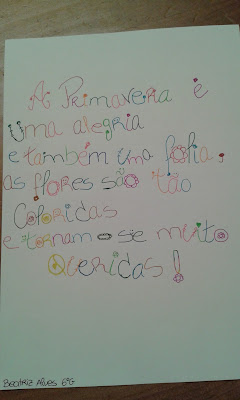 A Primavera é
uma alegria
e também uma folia,
as flores são tão
Coloridas
e tornam-se muito
Queridas!
Beatriz Alves 6ºG